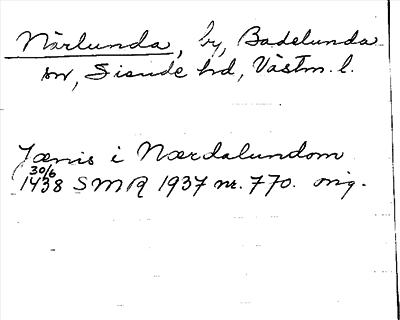 Närlunda, by, Badelunda
sn, Siende hd, Västm. l.
Jænis i Nærdalundom
30/6
1438 SMR 1937 nr. 770. orig.